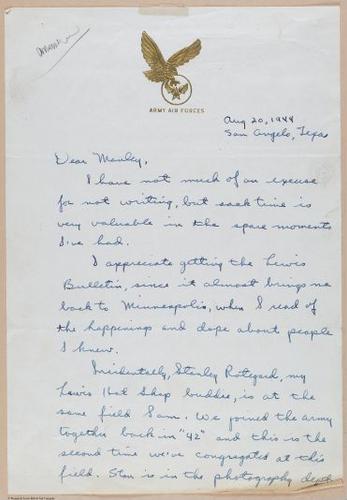 Answered
ARMY AIR FORCES
Aug 20, 1944
San Angelo, Texas
Dear Manley,
I have not much of an excuse
for not writing, but sack time is
very valuable in the spare moments
I've had.
I appreciate getting the Lewis
Bulletin, since it almost brings me
back to Minneapolis, when I read of
the happenings and dope about people
I knew.
Incidentally, Stanley Rotegard, my
Lewis Hat Shop buddie, is at the
same field I am. We joined the army
together back in "42" and this is the
second time we've congregated at this
field. Stan is in the photography dept